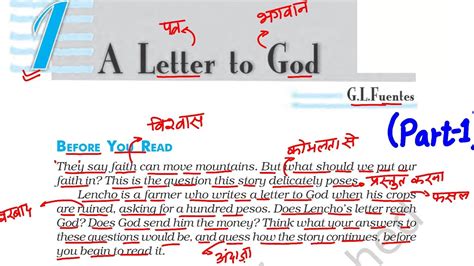 1
पत्र
भगवान
A Letter to God
G.L.Fuentes
(Part-1)
विश्वास
कोमलता से
BEFORE YOU READ
They say faith can move mountains. But what should we put our
faith in? This is the question this story delicately poses.
प्रस्तुत करना
Lencho is a farmer who writes a letter to God when his crops
फसल
बरबाद
are ruined, asking for a hundred pesos. Does Lencho's letter reach
God? Does God send him the money? Think what your answers to
these questions would be, and guess how the story continues, before
you begin to read it.
अंदाजा